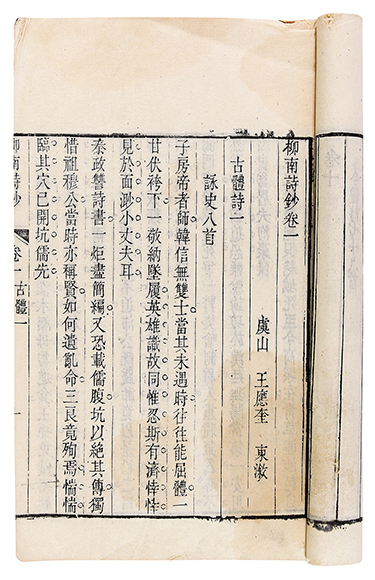 柳南詩鈔卷一
虞山 王應奎 東漵
古體詩一
詠史八首
子房帝者師韓信無雙士當其未遇時往往能屈體一
甘伏袴下一敬納墮履英雄識故同惟忍斯有濟悻悻
見於面渺小丈夫耳
秦政讐詩書一炬盡簡編又恐載儒腹坑以絕其傳獨
惜祖穆公當時亦稱賢如何遺亂命三良竟殉焉惴惴
臨其穴已開坑儒先
柳南詩鈔 卷一 古體一 一